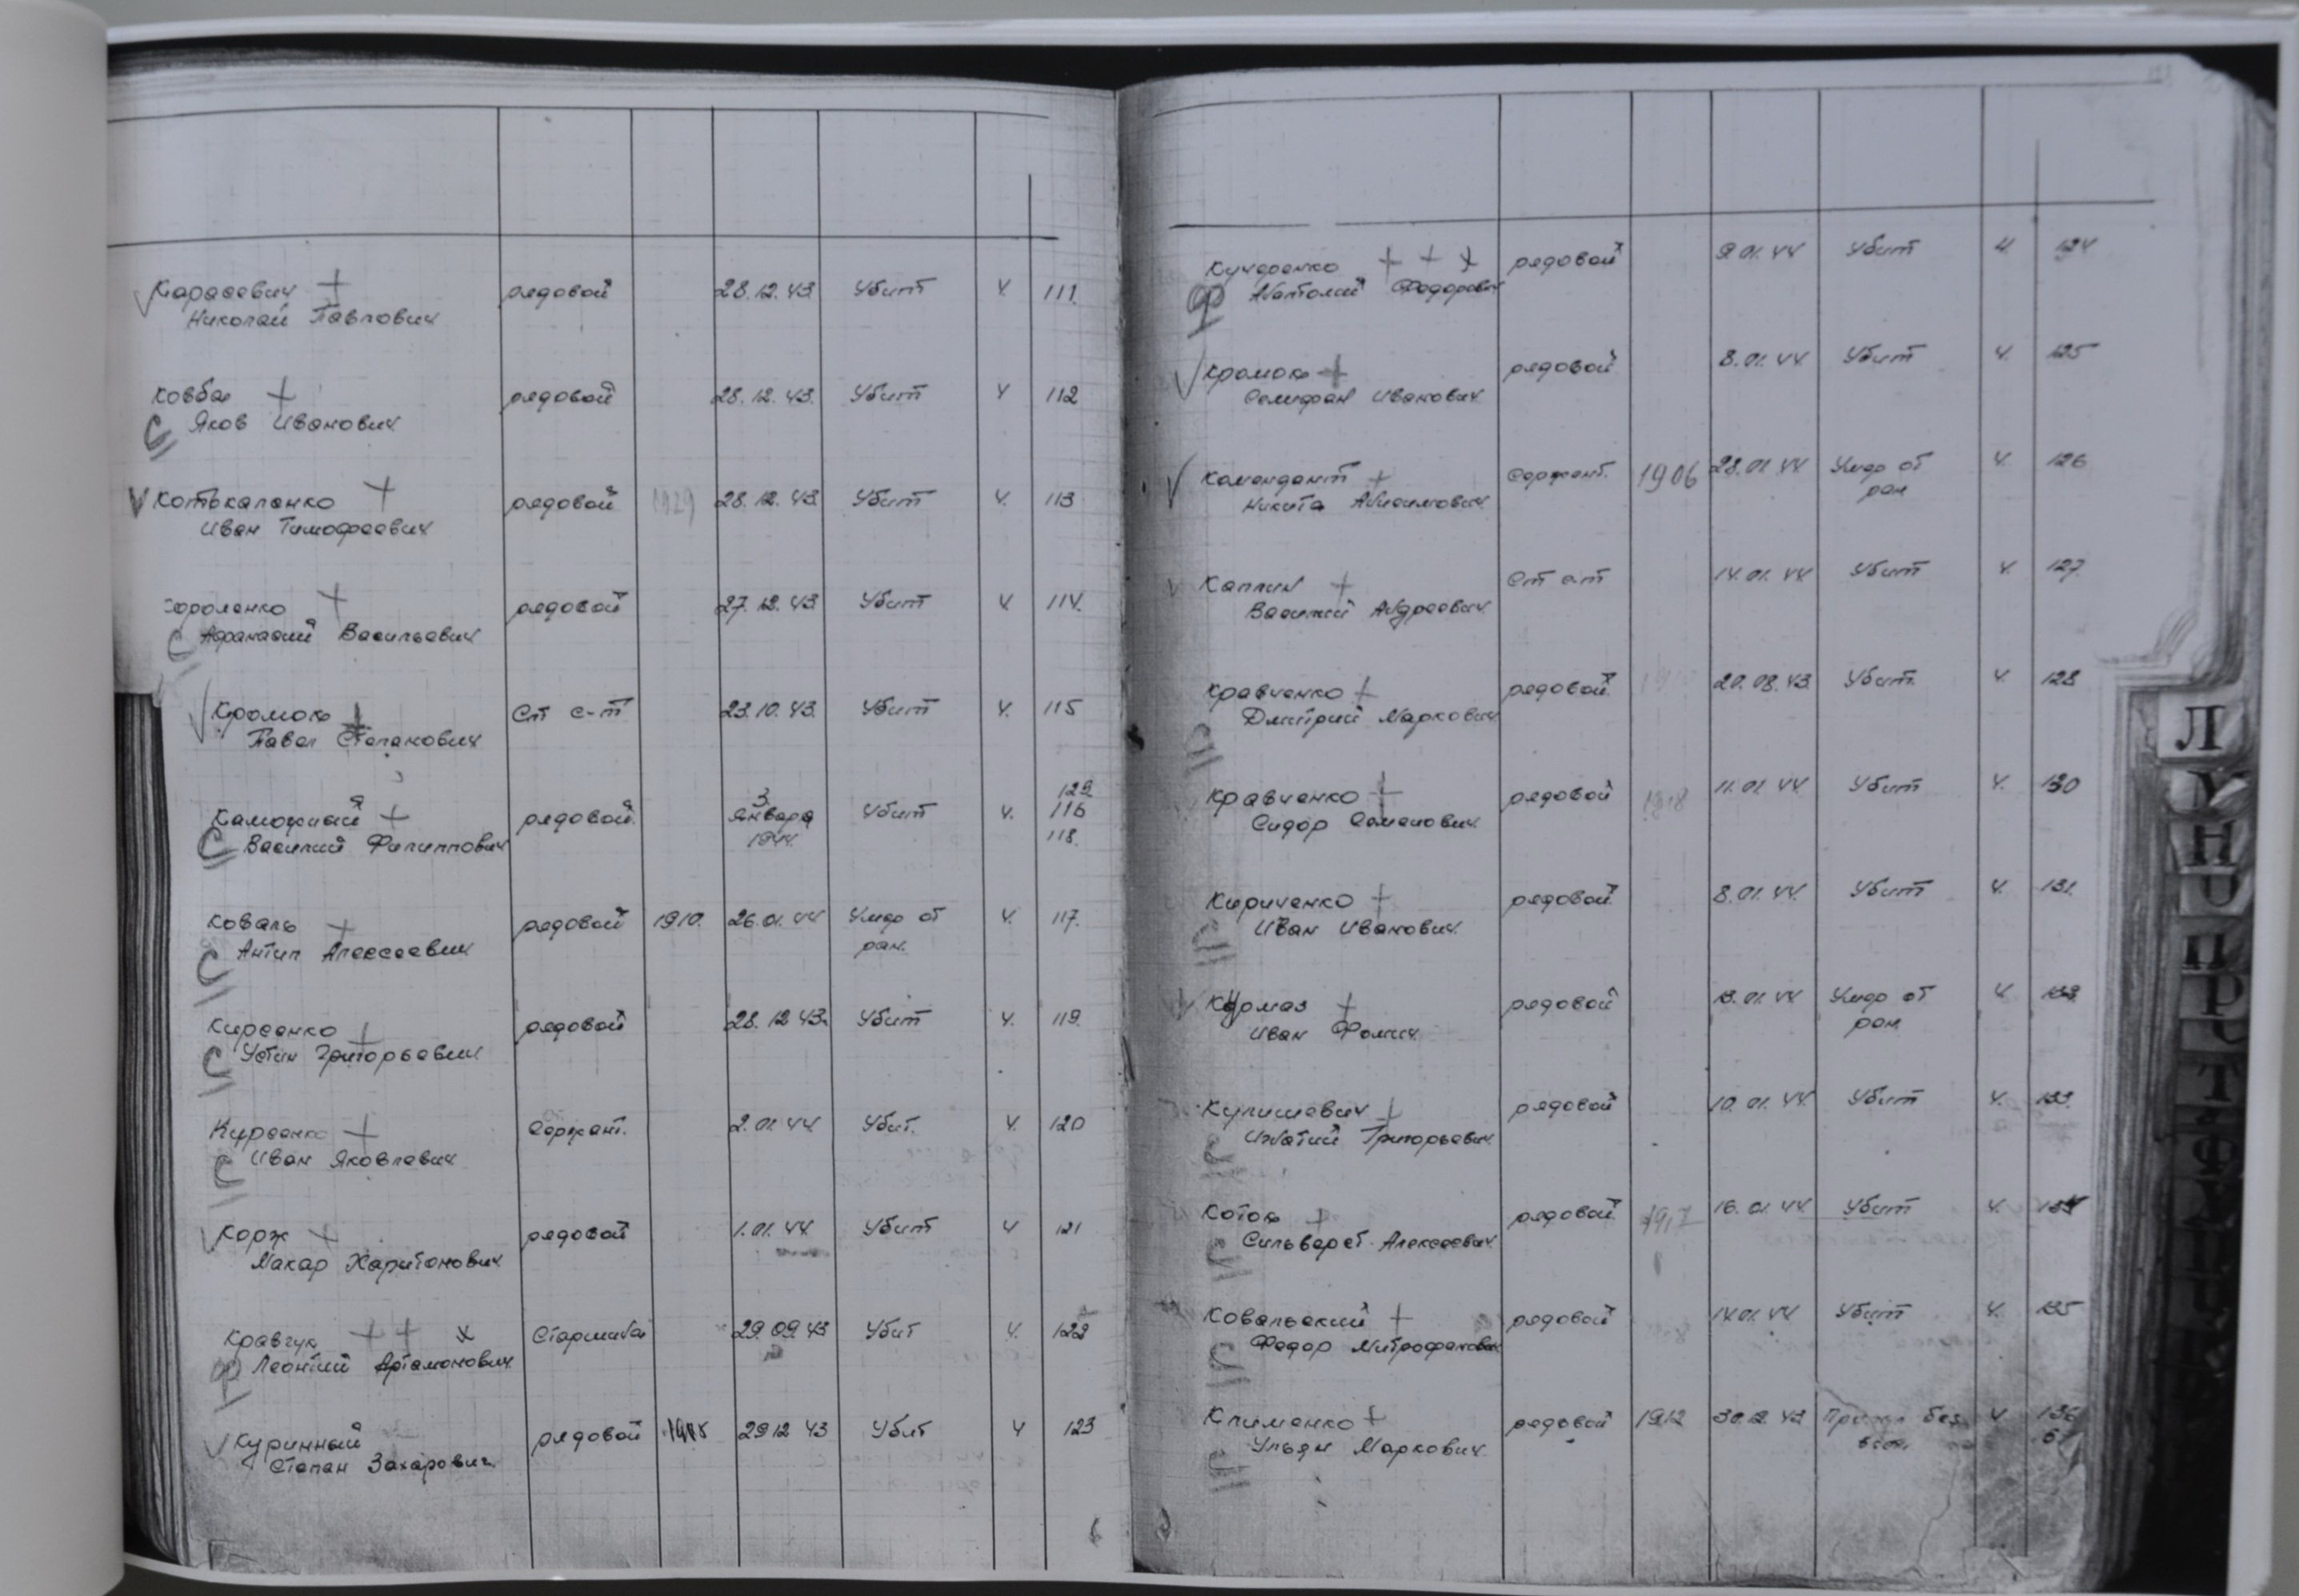 Карасевич рядовой 28.12.43 Убит Ч. 111.
Николай Павлович
Ковбаь рядовой 28.12.43. Убит Ч 112
С Яков Иванович
Котькаленко рядовой 1929 28.12.43 Убит Ч. 113
Иван Тимофеевич
Короленко рядовой 27.12.43 Убит Ч. 114.
С Афанасий Васильевич
Кромок Ст с-т 23.10.43. Убит Ч. 115
Павел Степанович
129
3.
Каможный рядовой. января Убит Ч. 116
С Василий Филиппович 1944. 118.
Коваль рядовой 1910. 26.01.44 Умер от Ч. 117.
С Антип Алексеевич ран.
Кирсенко рядовой 28.12 43. Убит Ч. 119.
С Устин Григорьевич
Кирсенко Сержант. 2.01.44. Убит. Ч. 120
С Иван Яковлевич
Корж рядовой 1.01.44. Убит Ч 121
Макар Харитонович
Кравчук Старшина 29.09.43 Убит Ч. 122
Ф Леонтий Артамонович
Куринный рядовой 1915 29 12 43 Убит Ч 123
Степан Захарович
Кундренко рядовой 9.01.44 Убит Ч 124
Ф Анатолий Федорович
Кромок рядовой 8.01.44 Убит Ч. 125
Селифан Иванович
Комендант Сержант. 1906 28.01.44 Умер от Ч. 126
Никита Анисимович ран
Каплин Ст с-т 14.01.44 Убит Ч. 127
Василий Андреевич
Кравченко рядовой 20.08.43 Убит. Ч. 128
Дмитрий Маркович
С
Кравченко рядовой 1918 11.01.44 Убит Ч. 130
Сидор Семенович
Кириченко рядовой 8.01.44. Убит Ч. 131
С Иван Иванович
Курмаз рядовой 13.01.44 Умер от Ч. 132
Иван Фомич ран
Кулишевич рядовой 10.01.44. Убит Ч. 133
С Игнатий Григорьевич
Коток рядовой 1917 16.01.44 Убит Ч. 134
С Сильверст Алексеевич
Ковальский рядовой 14.01.44 Убит Ч. 135
С Федор Митрофанович
Клименко рядовой 1912 30.12.43 Пропал без Ч 136
С Ульян Маркович вест.
Л
Н
О
П
Р
Т